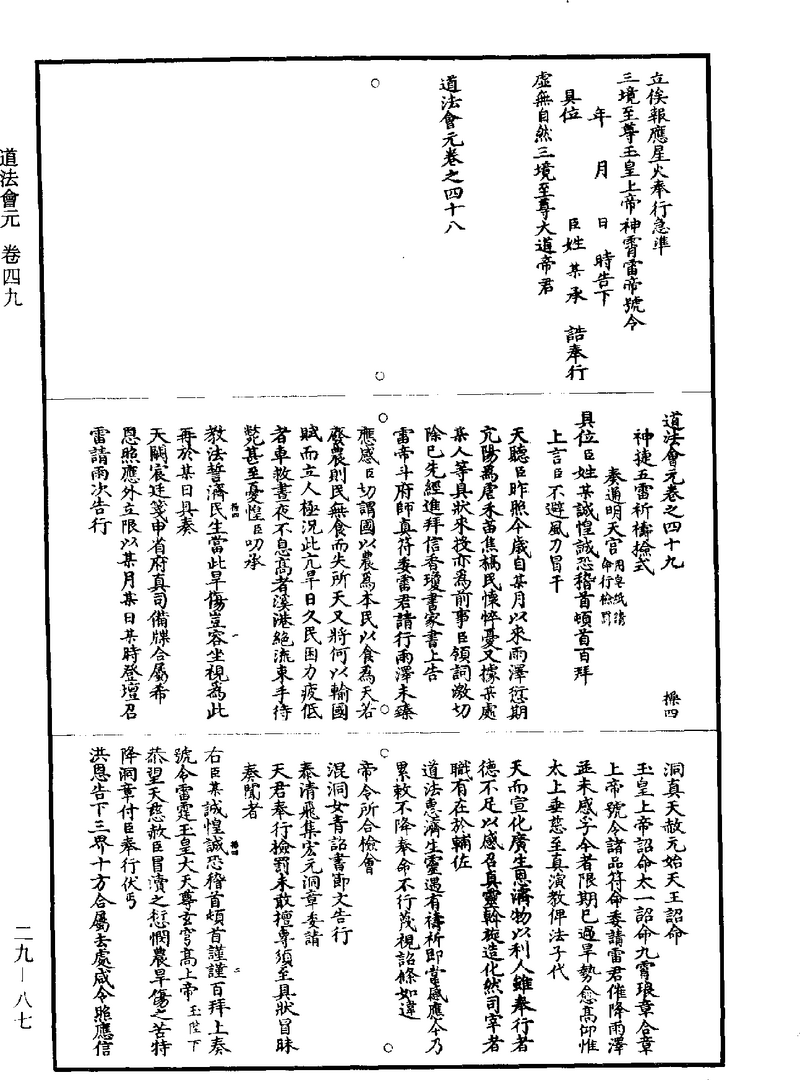 立俟報應星火奉行急準
三境至尊玉皇上帝神霄雷帝號令
年　月　日　時告下
具位　臣姓某承　誥奉行
虛無自然三境至尊大道帝君
道法會元卷之四十八
道法會元卷之四十九
操四
神捷五雷祈禱檢式
奏通明天宮 用皂紙請命行檢罰
具位臣姓某誠惶誠恐稽首頓首百拜
上言臣不避風刀冒干
天聽臣昨照今歲自某月以來雨澤愆期
亢陽為虐禾苗焦槁民懷悴憂又據某處
某人等具狀來投亦為前事臣領詞激切
除已先經進拜信香瓊書家書上告
雷帝斗府師真符委雷君請行雨澤未臻
應感臣切謂國以農為本民以食為天若
廢農則民無食而失所天又將何以輸國
賦而立人極況此亢旱日久民困力疲低
者車救晝夜不息高者溪港絕流束手待
斃甚至憂惶臣叨承
教法誓濟民生當此旱傷豈容坐視為此
再於某日具奏
天闕宸廷箋申省府真司備牒合屬希
恩照應外立限以某月某日某時登壇召
雷請雨次告行
洞真天赦元始天王詔命
玉皇上帝詔命太一詔命九霄琅章合章
上帝號令諸品符命委請雷君催降雨澤
並未感孚今者限期已過旱勢愈高仰惟
太上垂慈至真演教俾法子代
天而宣化廣生恩濟物以利人雖奉行者
德不足以感召真靈幹旋造化然司宰者
職有在於輔佐
道法惠濟生靈遇有禱祈即當感應今乃
累敕不降奉命不行蔑視詔條如違
帝令所合檢會
混洞女青詔書節文告行
泰清飛集宏元洞章委請
天君奉行檢罰未敢擅專須至具狀冒昧
奏聞者
右臣某誠惶誠恐稽首頓首謹謹百拜上奏
號令雷霆玉皇大天尊玄穹高上帝 玉陛下
恭望天慈赦臣冒瀆之愆憫農旱傷之苦特
降洞章付臣奉行伏丐
洪恩告下三界十方合屬去處咸令照應信
道法會元　卷四九
二九—八七